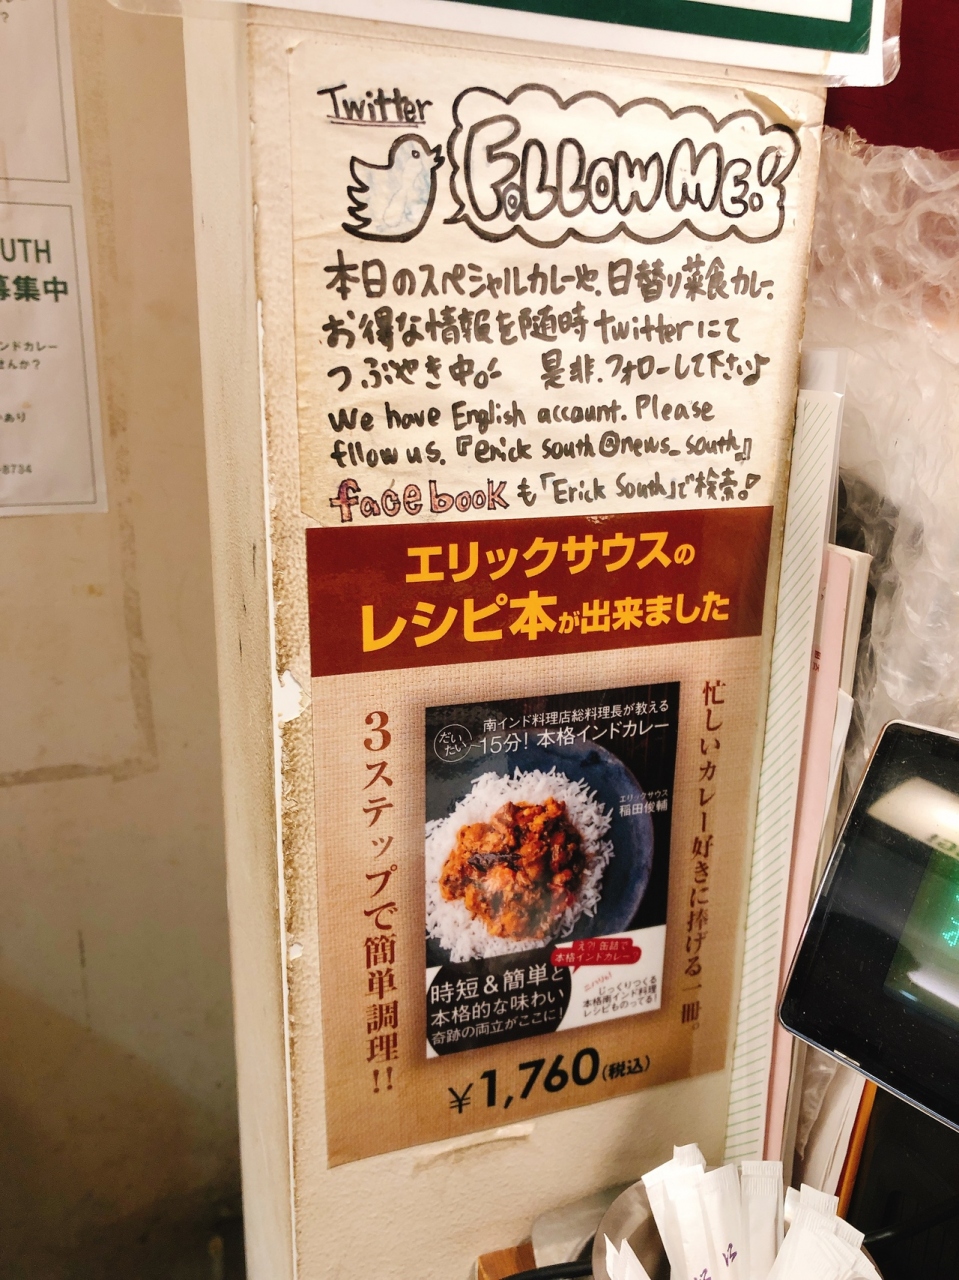 Twitter
FOLLOW ME!
本日のスペシャルカレーや、日替り菜食カレー、
お得な情報を随時twitterにて
つぶやき中。 是非、フォローして下さい♪
We have English account. Please
fllow us.『erick south@news_south』
facebookも「Erick South」で検索!
エリックサウスの
レシピ本が出来ました
忙しいカレー好きに捧げる一冊。
3ステップで簡単調理!!
南インド料理店総料理長が教える
だいたい15分! 本格インドカレー
エリックサウス
稲田俊輔
え?! 缶詰で
本格インドカレー
時短&簡単と
本格的な味わい
奇跡の両立がここに!
じっくりつくる
本格南インド料理
レシピものってる!
¥1,760(税込)
UTH
募集中
ンドカレー
せんか?
あり
-8734